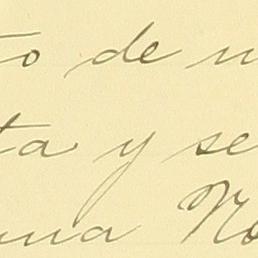 to de u
ta y se
una No